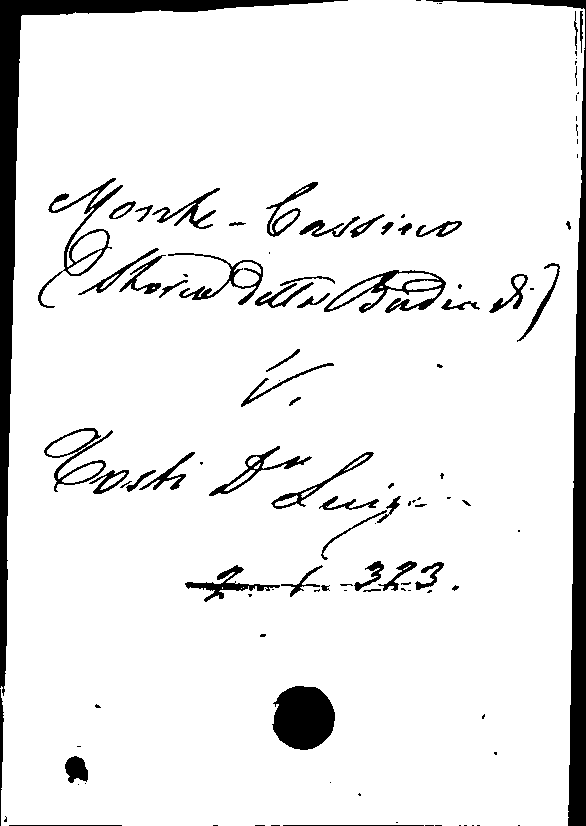 Monte-Cassino
(Storia della Badia di)
V.
Tosti Dn Luigi
2. 1. 323.